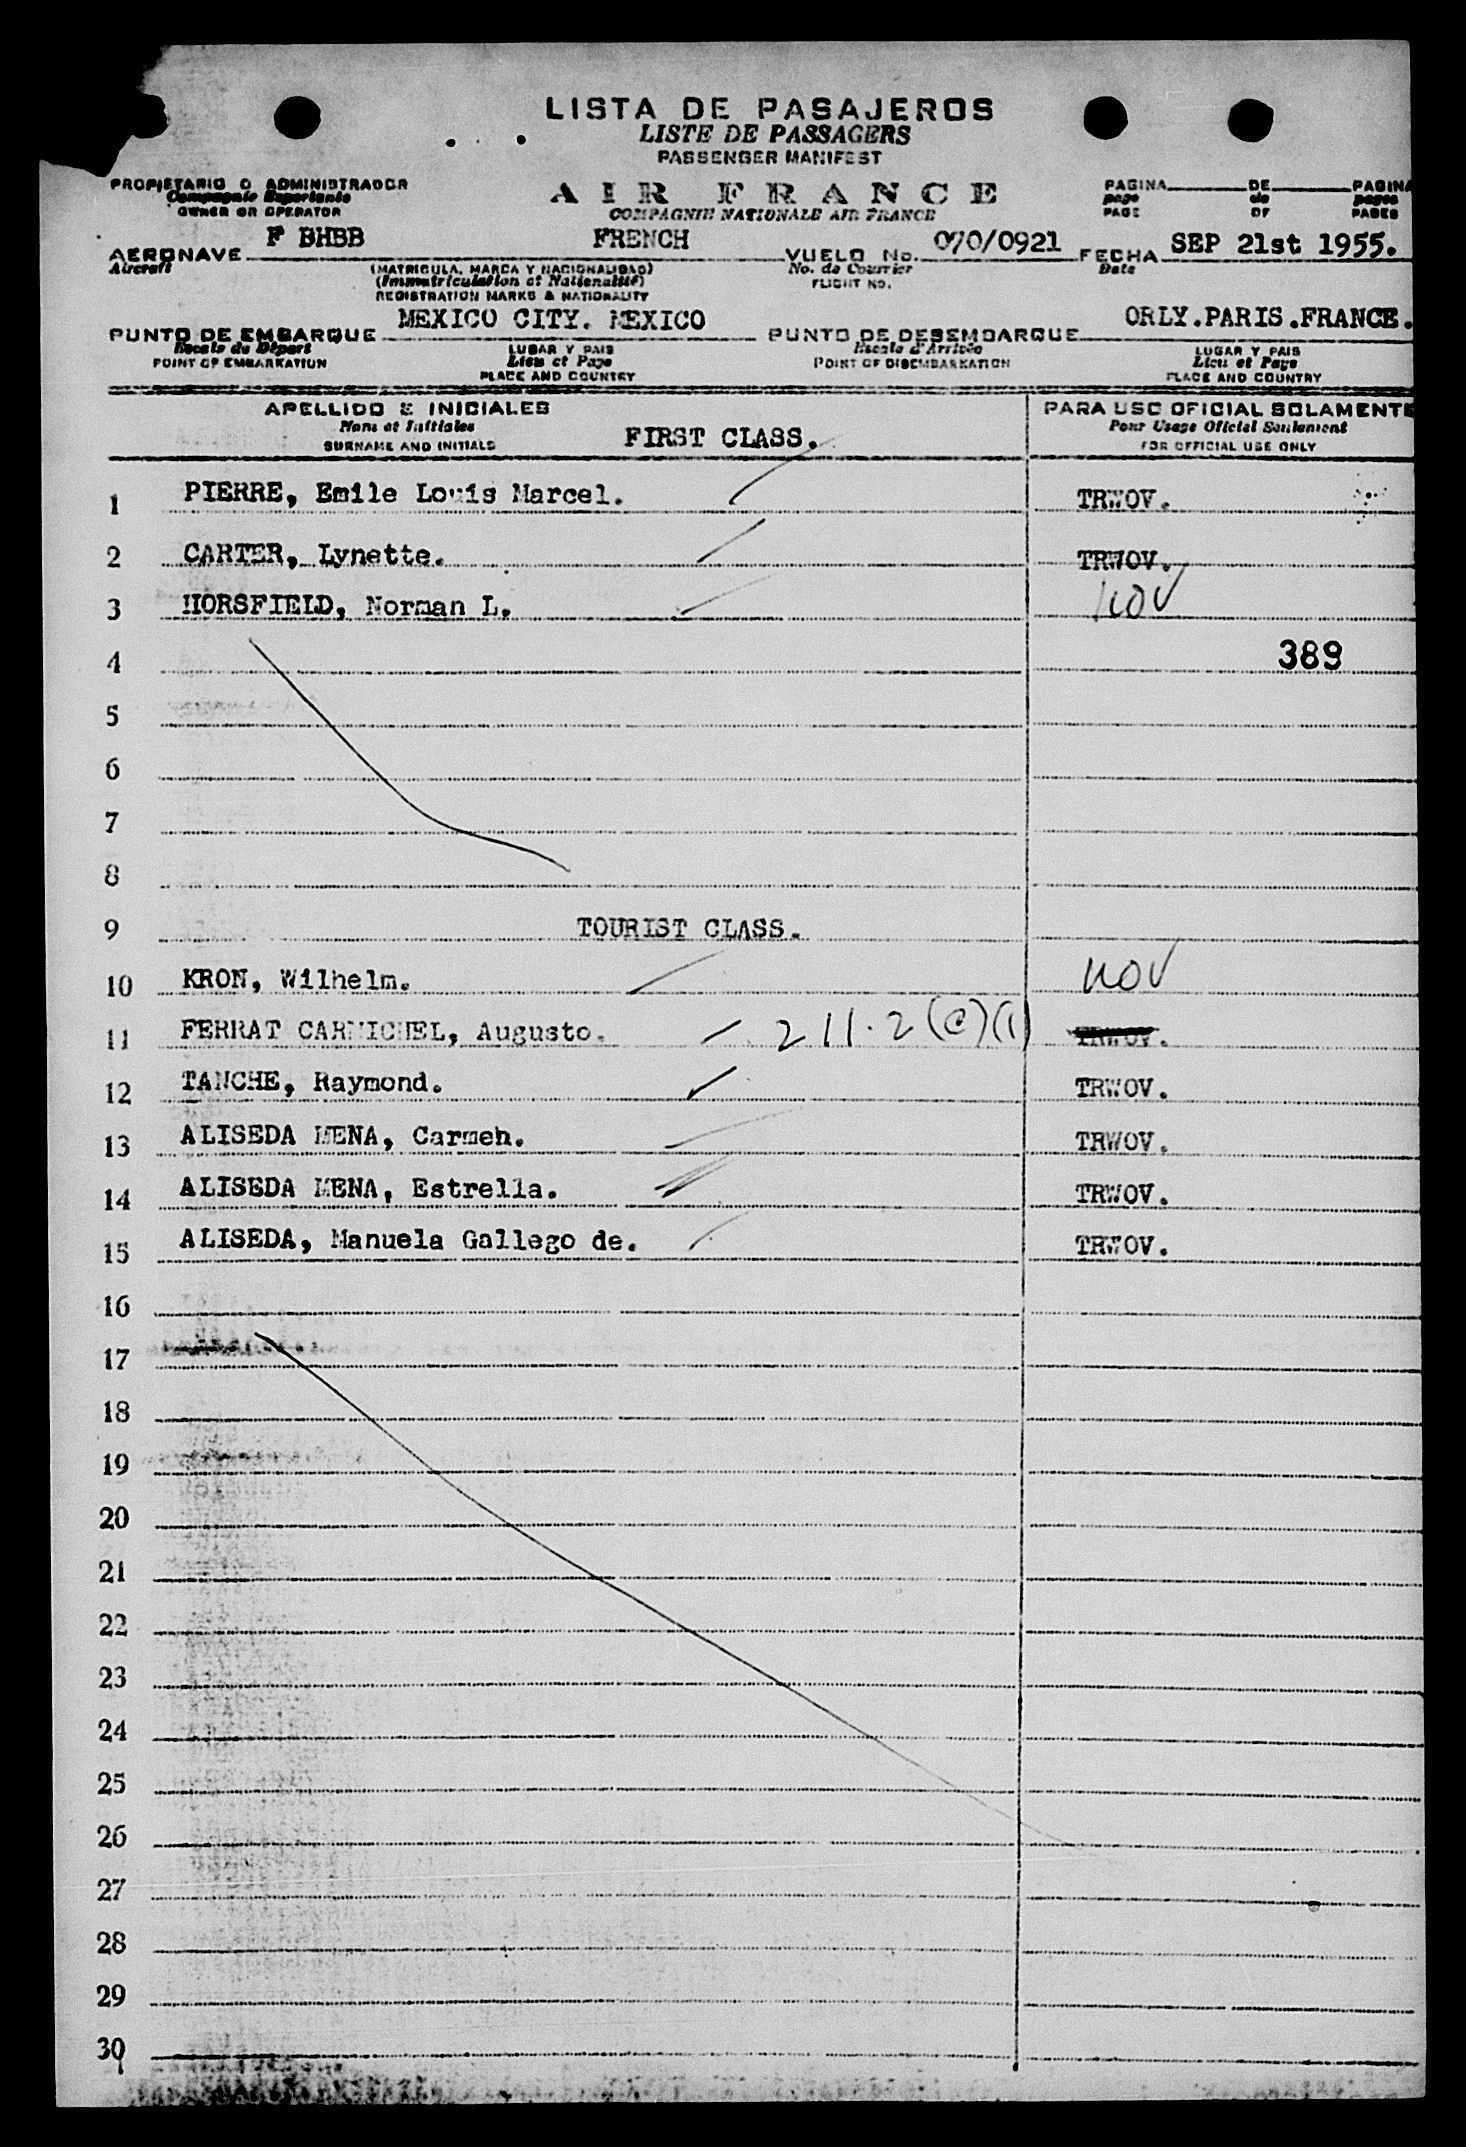 LISTA DE PASAJEROS
LISTE DE PASSAGERS
PASSENGER MANIFEST
PROPIETARIO O ADMINISTRADOR
Compagnie Exportante
OWNER OR OPERATOR
AIR FRANCE
COMPAGNIE NATIONALE AIR FRANCE
PAGINA DE PAGINA
page de pages
PAGE OF PAGES
AERONAVE F BHBB FRENCH VUELO No. 070/0921 FECHA SEP 21st 1955.
Aircraft (MATRICULA, MARCA Y NACIONALIDAD) No. de Courrier Date
(Immatriculation et Nationalité) FLIGHT NO.
REGISTRATION MARKS & NATIONALITY
PUNTO DE EMBARQUE MEXICO CITY. MEXICO PUNTO DE DESEMBARQUE ORLY.PARIS.FRANCE.
Escale du Départ LUGAR Y PAIS Escale d'Arrivée LUGAR Y PAIS
POINT OF EMBARKATION Lieu et Pays POINT OF DISEMBARKATION Lieu et Pays
PLACE AND COUNTRY PLACE AND COUNTRY
APELLIDO E INICIALES PARA USO OFICIAL SOLAMENTE
Nom et Initiales FIRST CLASS. Pour Usage Oficiel Seulement
SURNAME AND INITIALS FOR OFFICIAL USE ONLY
1 PIERRE, Emile Louis Marcel. TRWOV.
2 CARTER, Lynette. TRWOV.
3 HORSFIELD, Norman L. nov
4 389
5
6
7
8
9 TOURIST CLASS.
10 KRON, Wilhelm. nov
11 FERRAT CARMICHEL, Augusto. 211.2(c)(1) TRWOV.
12 TANCHE, Raymond. TRWOV.
13 ALISEDA MENA, Carmen. TRWOV.
14 ALISEDA MENA, Estrella. TRWOV.
15 ALISEDA, Manuela Gallego de. TRWOV.
16
17
18
19
20
21
22
23
24
25
26
27
28
29
30